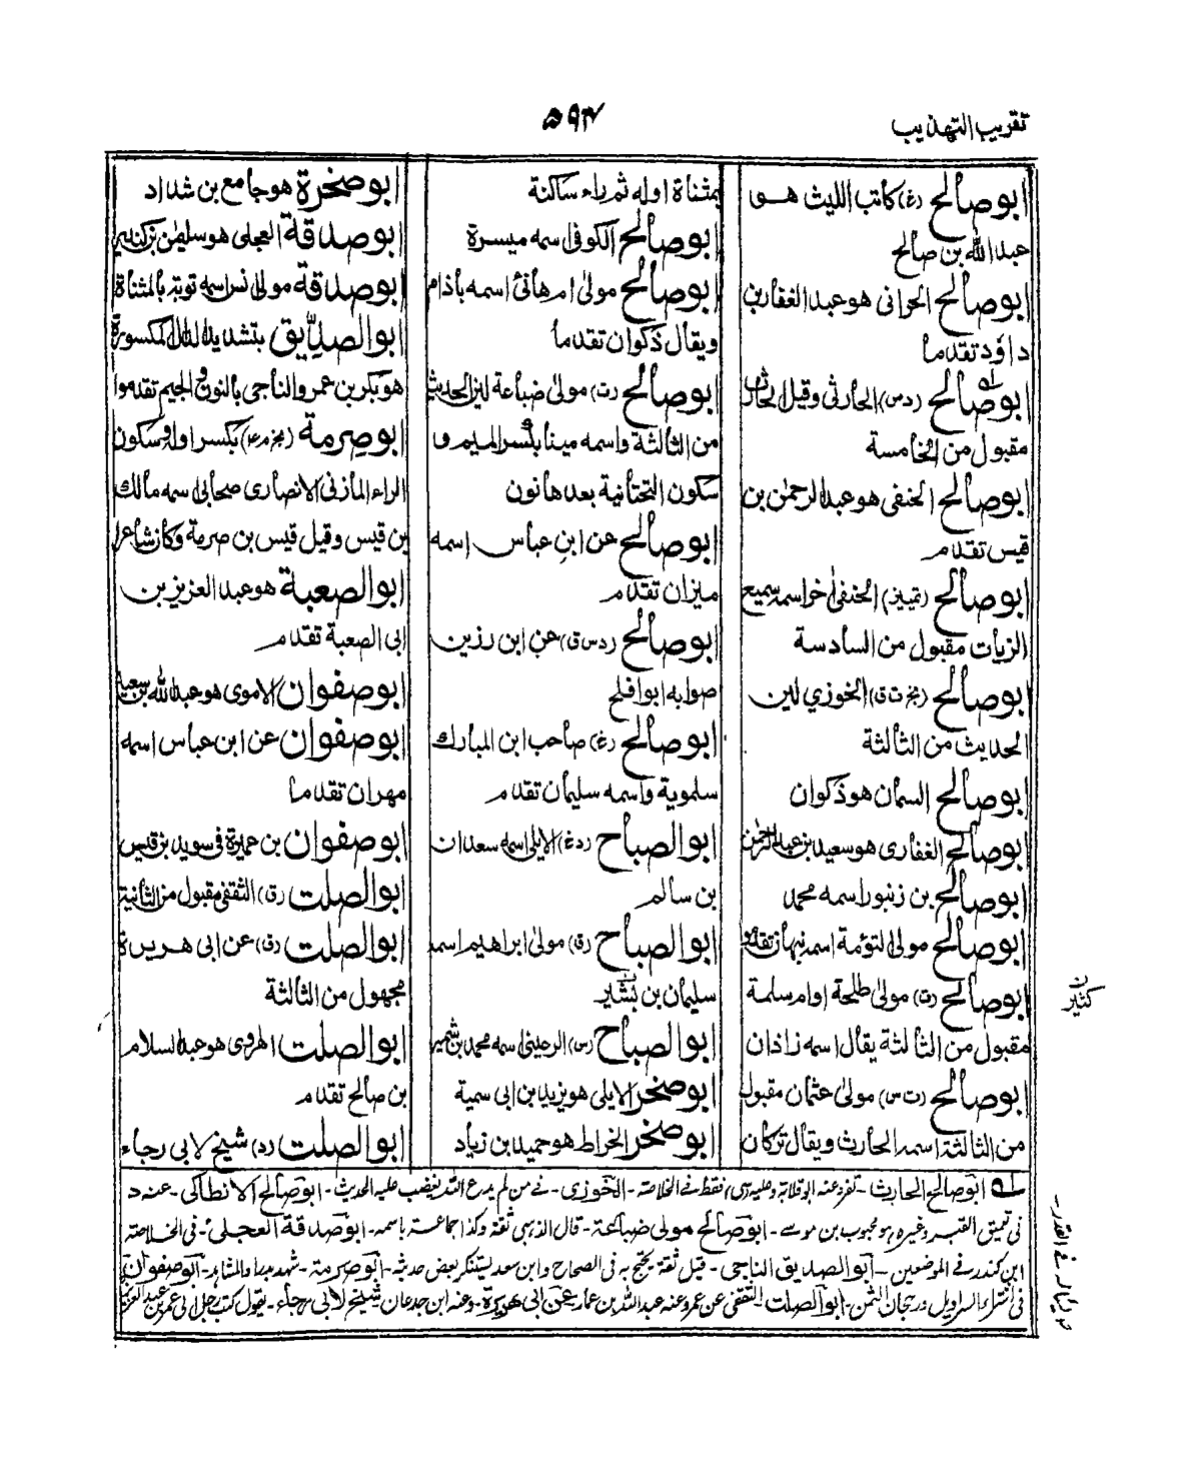 تقريب التهذيب
٥٩٣
ابو صالح (دغ) كاتب الليث هو
عبد الله بن صالح
ابو صالح الحرانى هو عبد الغفار بن
داؤد تقدما
ابو صالح (د س) الحارثى وقيل الحارث
مقبول من الخامسة
ابو صالح الحنفى هو عبد الرحمن بن
قيس تقدم
ابو صالح (تمييز) الحنفى اخر اسمه سميع
الزيات مقبول من السادسة
ابو صالح (بخ ت ق) الخوزي لين
الحديث من الثالثة
ابو صالح السمان هو ذكوان
ابو صالح الغفارى هو سعيد بن عبد الرحمن
ابو صالح بن زنبور اسمه محمد
ابو صالح مولى التؤمة اسمه نبهان تقدموا
ابو صالح (ت) مولى طلحة او ام سلمة
مقبول من الثالثة يقال اسمه زاذان
ابو صالح (ت س) مولى عثمان مقبول
من الثالثة اسمه الحارث ويقال تركان
بمثناة اوله ثم راء ساكنة
ابو صالح الكوفى اسمه ميسرة
ابو صالح مولى ام هانئ اسمه باذام
ويقال ذكوان تقدما
ابو صالح (ت) مولى ضباعة لين الحديث
من الثالثة واسمه مينا بكسر الميم و
سكون التحتانية بعدها نون
ابو صالح عن ابن عباس اسمه
ميزان تقدم
ابو صالح (د س ق) عن ابن رزين
صوابه ابو افلح
ابو صالح (غ) صاحب ابن المبارك
سلموية واسمه سليمان تقدم
ابو الصباح (دغ) الايلى اسمه سعدان
بن سالم
ابو الصباح (ق) مولى ابراهيم اسمه
سليمان بن بشير
ابو الصباح (س) الرعينى اسمه محمد بن شمير
ابو صخر الايلى هو يزيد بن ابى سمية
ابو صخر الخراط هو حميد بن زياد
ابو صخرة هو جامع بن شداد
ابو صدقة العجلى هو سليمن بن كنير
ابو صدقة مولى انس اسمه توبة بالمثناة
ابو الصديق بتشديد الدال المكسورة
هو بكر بن عمرو الناجى بالنون والجيم تقدموا
ابو صرمة (بخ م ع) بكسر اوله وسكون
الراء المازنى الانصارى صحابى اسمه مالك
بن قيس وقيل قيس بن صرمة وكان شاعرا
ابو الصعبة هو عبد العزيز بن
ابى الصعبة تقدم
ابو صفوان الاموى هو عبد الله بن سعيد
ابو صفوان عن ابن عباس اسمه
مهران تقدما
ابو صفوان بن عميرة فى سويد بن قيس
ابو الصلت (ق) الثقفى مقبول من الثانية
ابو الصلت (ق) عن ابى هريرة
مجهول من الثالثة
ابو الصلت الهروى هو عبد السلام
بن صالح تقدم
ابو الصلت (د) شيخ لابى رجاء
كثير
ابو صالح الحارث - تفرد عنه ابو قلابة وعليه (س) فقط فى الخلاصة - الخوزى - فى من لم يدع الله يغضب عليه الحديث - ابو صالح الانطاكى - عنه د
فى تعميق القبر وغيره هو محبوب بن موسى - ابو صالح مولى ضباعة - قال الذهبى ثقة وكذا جماعة باسمه - ابو صدقة العجلى - فى الخلاصة
ابن كندر فى الموضعين - ابو الصديق الناجى - قيل ثقة يحتج به فى الصحاح وابن سعد يستنكر بعض حديثه - ابو صرمة - شهد بدرا والمشاهد - ابو صفوان
فى اشتراء السراويل ورجحان الثمن - ابو الصلت الثقفى عن عمر وعنه عبد الله بن عمار - عن ابى هريرة - وعنه ابن جدعان شيخ لابى رجاء - يقول كتب رجل الى عمر بن عبد العزيز
فى القدر